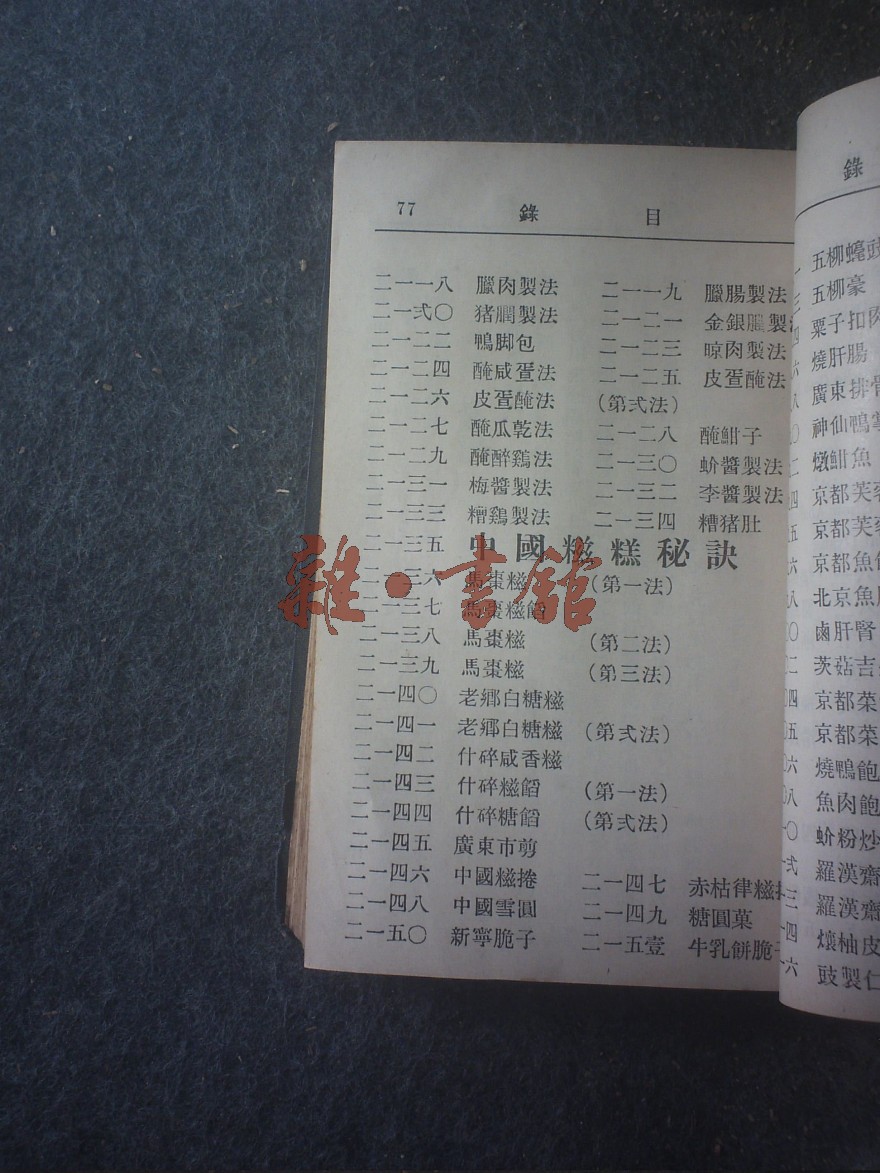 77 錄 目
二一一八 臘肉製法 二一一九 臘腸製法
二一弍〇 猪膶製法 二一二一 金銀膶製
二一二二 鴨脚包 二一二三 晾肉製法
二一二四 醃咸疍法 二一二五 皮疍醃法
二一二六 皮疍醃法 (第弍法)
二一二七 醃瓜乾法 二一二八 醃蚶子
二一二九 醃醉鷄法 二一三〇 蚧醬製法
二一三一 梅醬製法 二一三二 李醬製法
二一三三 糟鷄製法 二一三四 糟猪肚
二一三五 中國糍糕秘訣
二一三六 馬棗糍 (第一法)
二一三七 馬棗糍餡
二一三八 馬棗糍 (第二法)
二一三九 馬棗糍 (第三法)
二一四〇 老鄉白糖糍
二一四一 老鄉白糖糍 (第弍法)
二一四二 什碎咸香糍
二一四三 什碎糍餡 (第一法)
二一四四 什碎糖餡 (第弍法)
二一四五 廣東市剪
二一四六 中國糍捲 二一四七 赤枯律糍
二一四八 中國雪圓 二一四九 糖圓菓
二一五〇 新寧脆子 二一五壹 牛乳餅脆子
雜·書館
錄
一 五柳
三 五柳豪
四 粟子扣肉
六 燒肝腸
八 廣東排骨
〇 神仙鴨掌
二 燉魽魚
四 京都芙蓉
五 京都芙蓉
六 京都魚
八 北京魚
〇 鹵肝腎
二 茨菇吉
四 京都菜
五 京都菜
六 燒鴨飽
八 魚肉飽
一〇 蚧粉炒
一弍 羅漢齋
一三 羅漢齋
一四 燶柚皮
一六 豉製仁